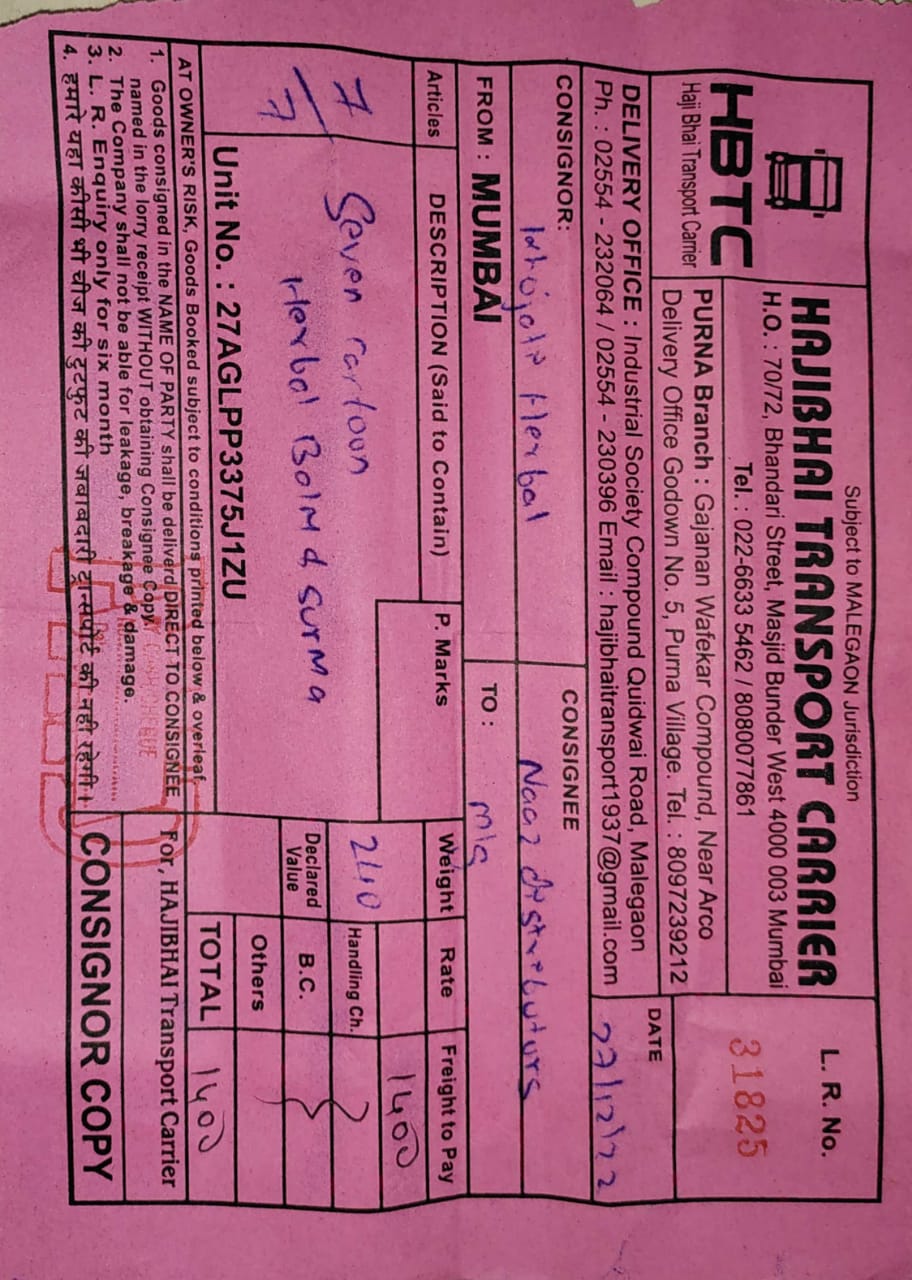 Subject to MALEGAON Jurisdiction
HAJIBHAI TRANSPORT CARRIER
H.O. : 70/72, Bhandari Street, Masjid Bunder West 4000 003 Mumbai
Tel. : 022-6633 5462 / 8080077861
HBTC
Haji Bhai Transport Carrier
PURNA Branch : Gajanan Wafekar Compound, Near Arco
Delivery Office Godown No. 5, Purna Village. Tel. : 8097239212
L. R. No.
31825
DELIVERY OFFICE : Industrial Society Compound Quidwai Road, Malegaon
Ph. : 02554 - 232064 / 02554 - 230396 Email : hajibhaitransport1937@gmail.com
DATE
27/12/22
CONSIGNOR:
Herbal
CONSIGNEE
Naaz
FROM : MUMBAI
TO : Mlg
Articles
DESCRIPTION (Said to Contain)
P. Marks
Weight
Rate
Freight to Pay
7/7
Seven cartoon
Herbal Balm & Surma
240
1400
Handling Ch.
Declared Value
B.C.
Others
TOTAL
1400
Unit No. : 27AGLPP3375J1ZU
AT OWNER'S RISK, Goods Booked subject to conditions printed below & overleaf
1. Goods consigned in the NAME OF PARTY shall be deliverd DIRECT TO CONSIGNEE
named in the lorry receipt WITHOUT obtaining Consignee Copy
2. The Company shall not be able for leakage, breakage & damage.
3. L. R. Enquiry only for six month
4. हमारे यहा कीसी भी चीज की टुटफुट की जवाबदारी ट्रान्सपोर्ट की नही रहेगी।
For, HAJIBHAI Transport Carrier
CONSIGNOR COPY